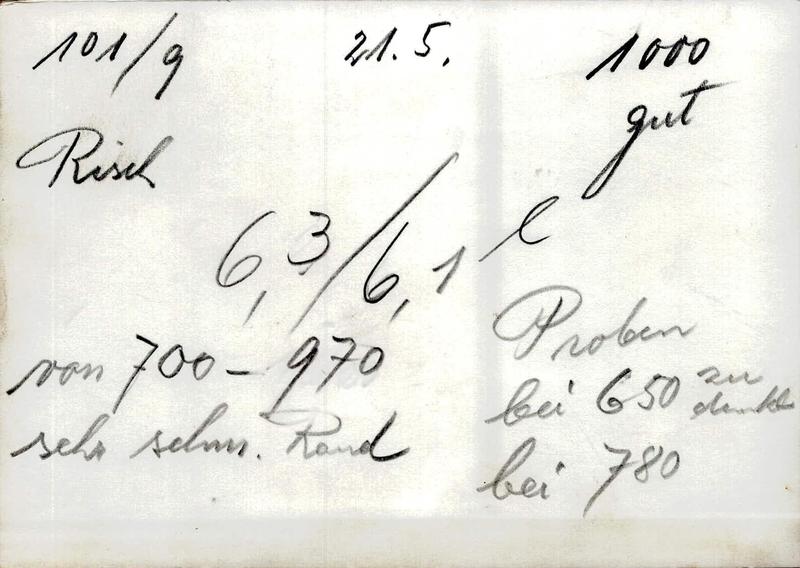 101/9 21. 5. 1000
gut
Risch
6,3/6,1 l
von 700 - 970
sehr schm. Rand
Proben
bei 650 zu
dunkel
bei 780